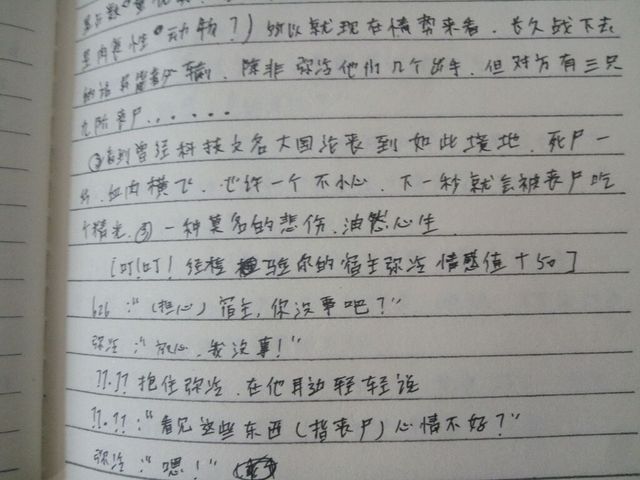 是肉食性"动物?)所以就现在情势来看,长久战下去
的话只能输,除非弥冷他们几个出手,但对方有三只
九阶丧尸......
③看到曾经科技文名大国沦丧到如此境地,死尸一
片,血肉横飞,也许一个不小心,下一秒就会被丧尸吃
个精光,③一种莫名的悲伤,油然心生
[叮!叮!经检验您的宿主弥冷情感值+50]
626:"(担心)宿主,你没事吧?"
弥冷:"放心,我没事!"
??.??抱住弥冷,在他耳边轻轻说
??.??:"看见这些东西(指丧尸)心情不好?"
弥冷:"嗯!"